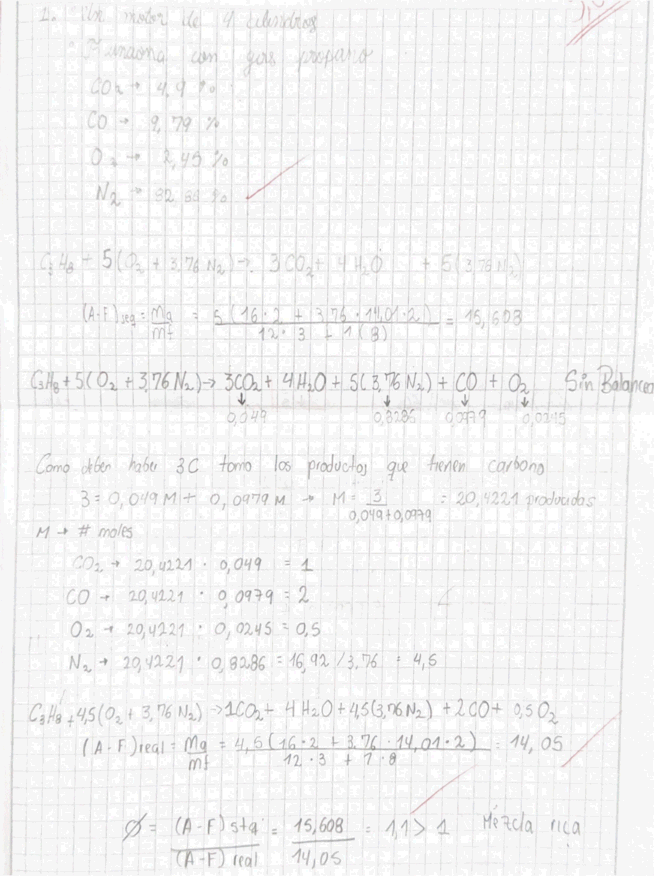 1. Un motor de 4 cilindros
Funciona con gas propano
CO₂ → 4,9 %
CO → 9,79 %
O₂ → 2,45 %
N₂ → 82,86 %
C₃H₈ + 5(O₂ + 3,76 N₂) → 3CO₂ + 4H₂O + 5(3,76 N₂)
(A-F)steq = mg/mf = 5(16·2 + 3,76·14,01·2)/12·3 + 1(8) = 15,608
C₃H₈ + 5(O₂ + 3,76 N₂) → 3CO₂ + 4H₂O + 5(3,76 N₂) + CO + O₂ Sin Balancea
↓ ↓ ↓ ↓
0,049 0,8286 0,0979 0,0245
Como deben haber 3C tomo los productos que tienen carbono
3 = 0,049 M + 0,0979 M → M = 3/0,049+0,0979 = 20,4221 producidas
M → # moles
CO₂ → 20,4221 · 0,049 = 1
CO → 20,4221 · 0,0979 = 2
O₂ → 20,4221 · 0,0245 = 0,5
N₂ → 20,4221 · 0,8286 = 16,92 /3,76 = 4,5
C₃H₈ + 4,5(O₂ + 3,76 N₂) → 1CO₂ + 4H₂O + 4,5(3,76 N₂) + 2CO + 0,5O₂
(A-F)real = mg/mf = 4,5(16·2 + 3,76·14,01·2)/12·3 + 1·8 = 14,05
Ø = (A-F)stq/(A-F)real = 15,608/14,05 = 1,1 > 1 Mezcla rica